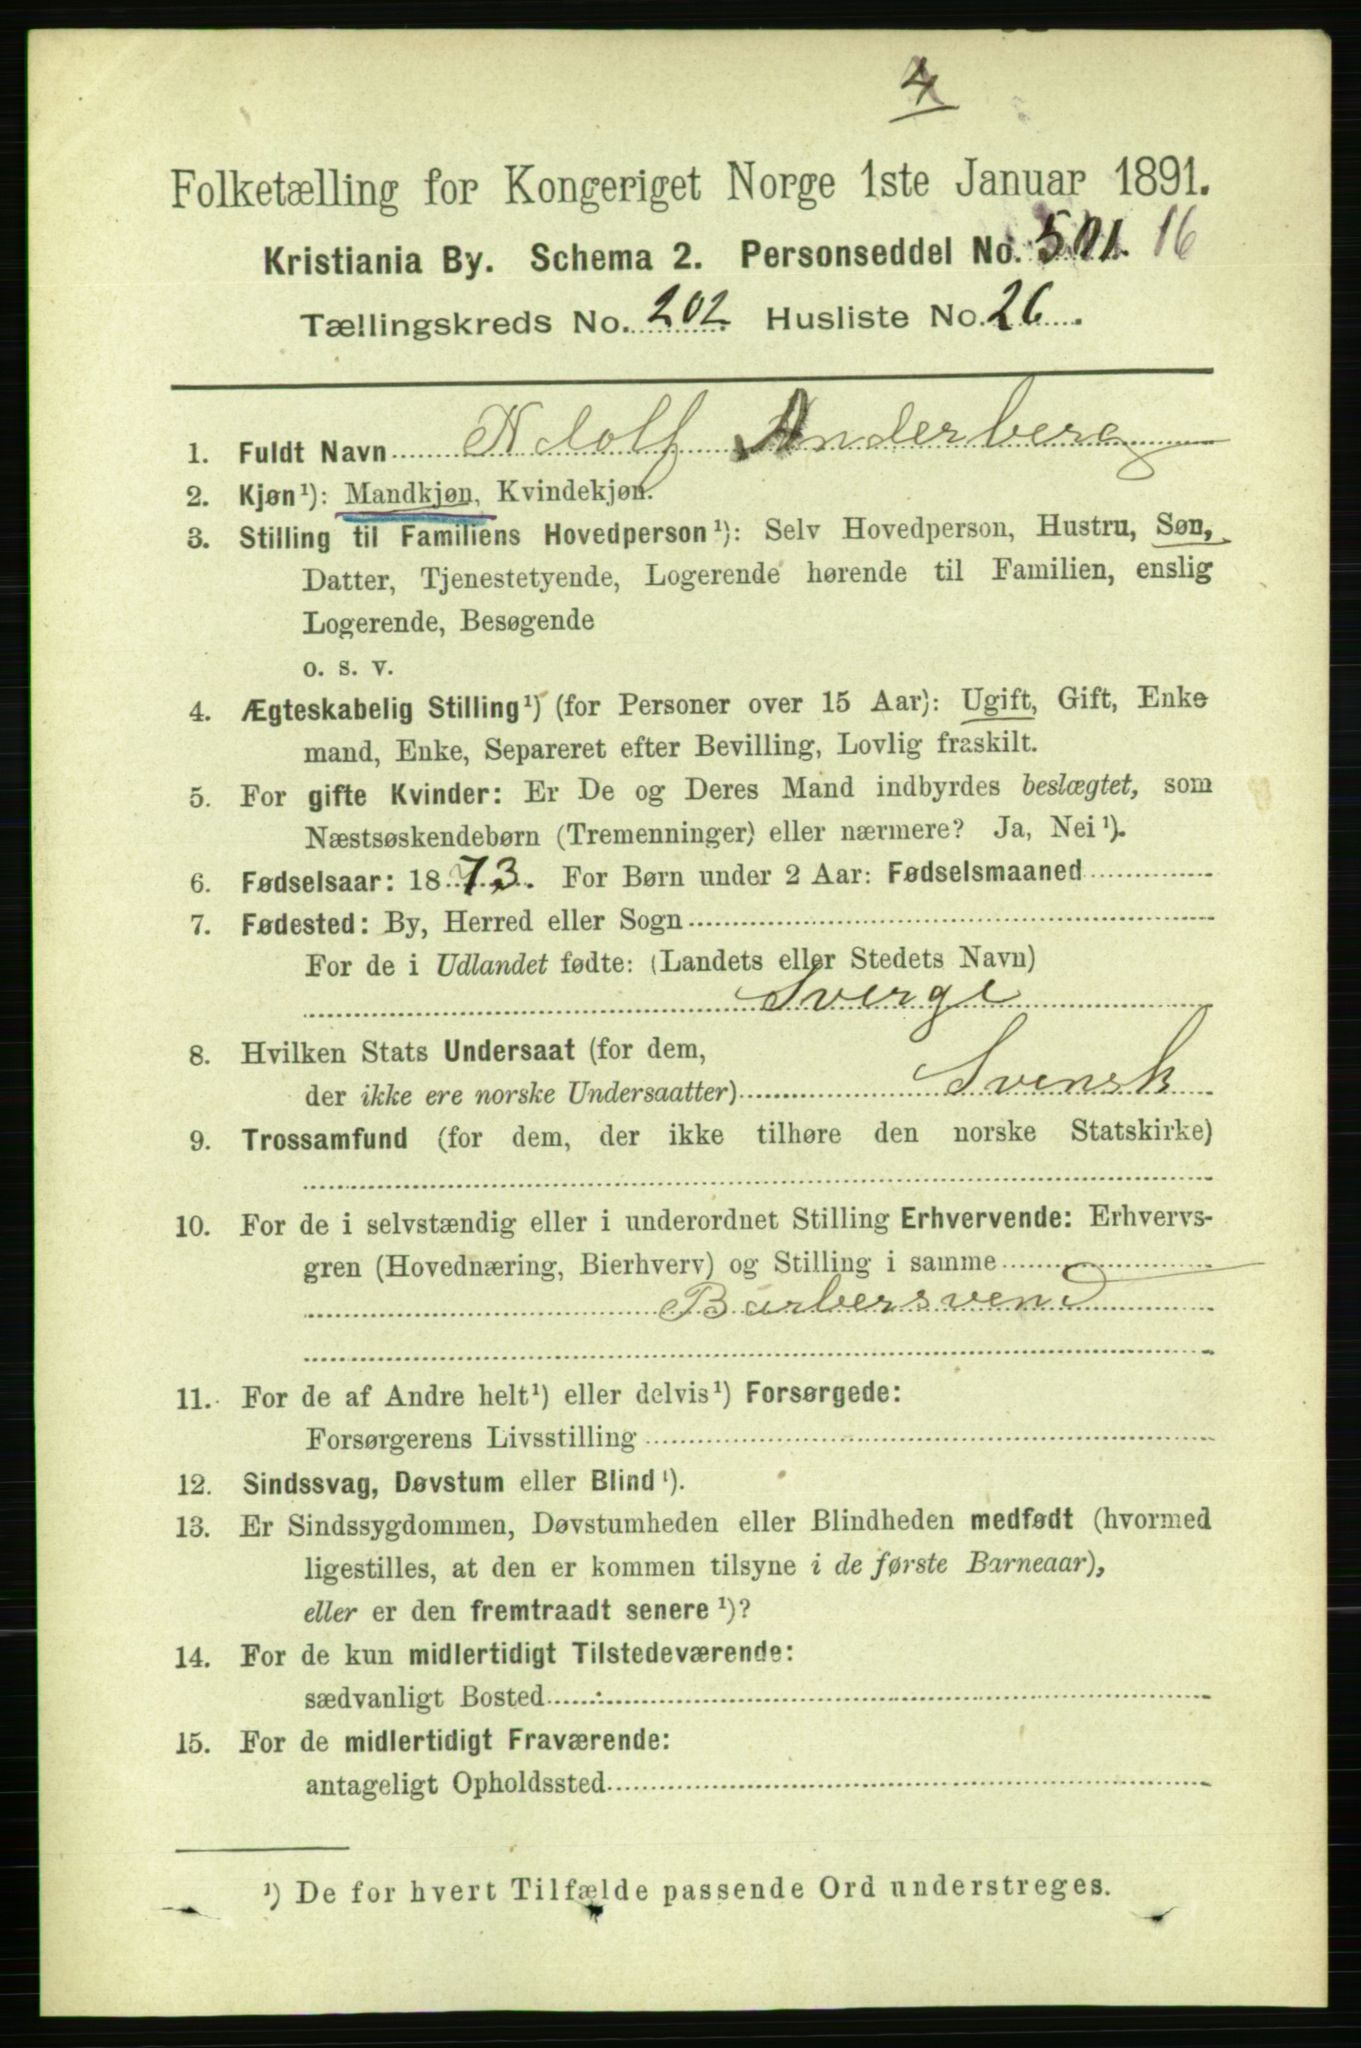 4
Folketælling for Kongeriget Norge 1ste Januar 1891.
Kristiania By. Schema 2. Personseddel No. 501. 16
Tællingskreds No. 202. Husliste No. 26.
1. Fuldt Navn Adolf Anderberg
2. Kjøn¹): Mandkjøn, Kvindekjøn.
3. Stilling til Familiens Hovedperson¹): Selv Hovedperson, Hustru, Søn,
Datter, Tjenestetyende, Logerende hørende til Familien, enslig
Logerende, Besøgende
o. s. v.
4. Ægteskabelig Stilling¹) (for Personer over 15 Aar): Ugift, Gift, Enke
mand, Enke, Separeret efter Bevilling, Lovlig fraskilt.
5. For gifte Kvinder: Er De og Deres Mand indbyrdes beslægtet, som
Næstsøskendebørn (Tremenninger) eller nærmere? Ja, Nei¹).
6. Fødselsaar: 1873. For Børn under 2 Aar: Fødselsmaaned
7. Fødested: By, Herred eller Sogn
For de i Udlandet fødte: (Landets eller Stedets Navn)
Sverge
8. Hvilken Stats Undersaat (for dem,
der ikke ere norske Undersaatter) Svensk
9. Trossamfund (for dem, der ikke tilhøre den norske Statskirke)
10. For de i selvstændig eller i underordnet Stilling Erhvervende: Erhvervs-
gren (Hovednæring, Bierhverv) og Stilling i samme
Barbersvend
11. For de af Andre helt¹) eller delvis¹) Forsørgede:
Forsørgerens Livsstilling
12. Sindssvag, Døvstum eller Blind¹).
13. Er Sindssygdommen, Døvstumheden eller Blindheden medfødt (hvormed
ligestilles, at den er kommen tilsyne i de første Barneaar),
eller er den fremtraadt senere¹)?
14. For de kun midlertidigt Tilstedeværende:
sædvanligt Bosted
15. For de midlertidigt Fraværende:
antageligt Opholdssted
¹) De for hvert Tilfælde passende Ord understreges.